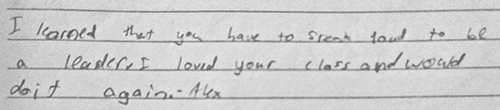 I learned that you have to speak loud to be
a leader. I loved your class and would
do it again. - Alex